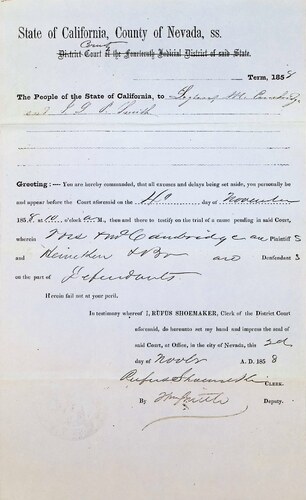 State of California, County of Nevada, ss.
County
District Court of the Fourteenth Judicial District of said State.
Term, 1858
The People of the State of California, to
and J. G. P. Smith
Greeting:—You are hereby commanded, that all excuses and delays being set aside, you personally be
and appear before the Court aforesaid on the 4th day of November
1858 at 10 o'clock A. M., then and there to testify on the trial of a cause pending in said Court,
wherein & McCambridge are Plaintiffs
and & Bro are Defendants
on the part of Defendants
Herein fail not at your peril.
In testimony whereof I, RUFUS SHOEMAKER, Clerk of the District Court
aforesaid, do hereunto set my hand and impress the seal of
said Court, at Office, in the city of Nevada, this 2d
day of Novbr A. D. 1858
Rufus Shoemaker CLERK.
By Wm Smith Deputy.